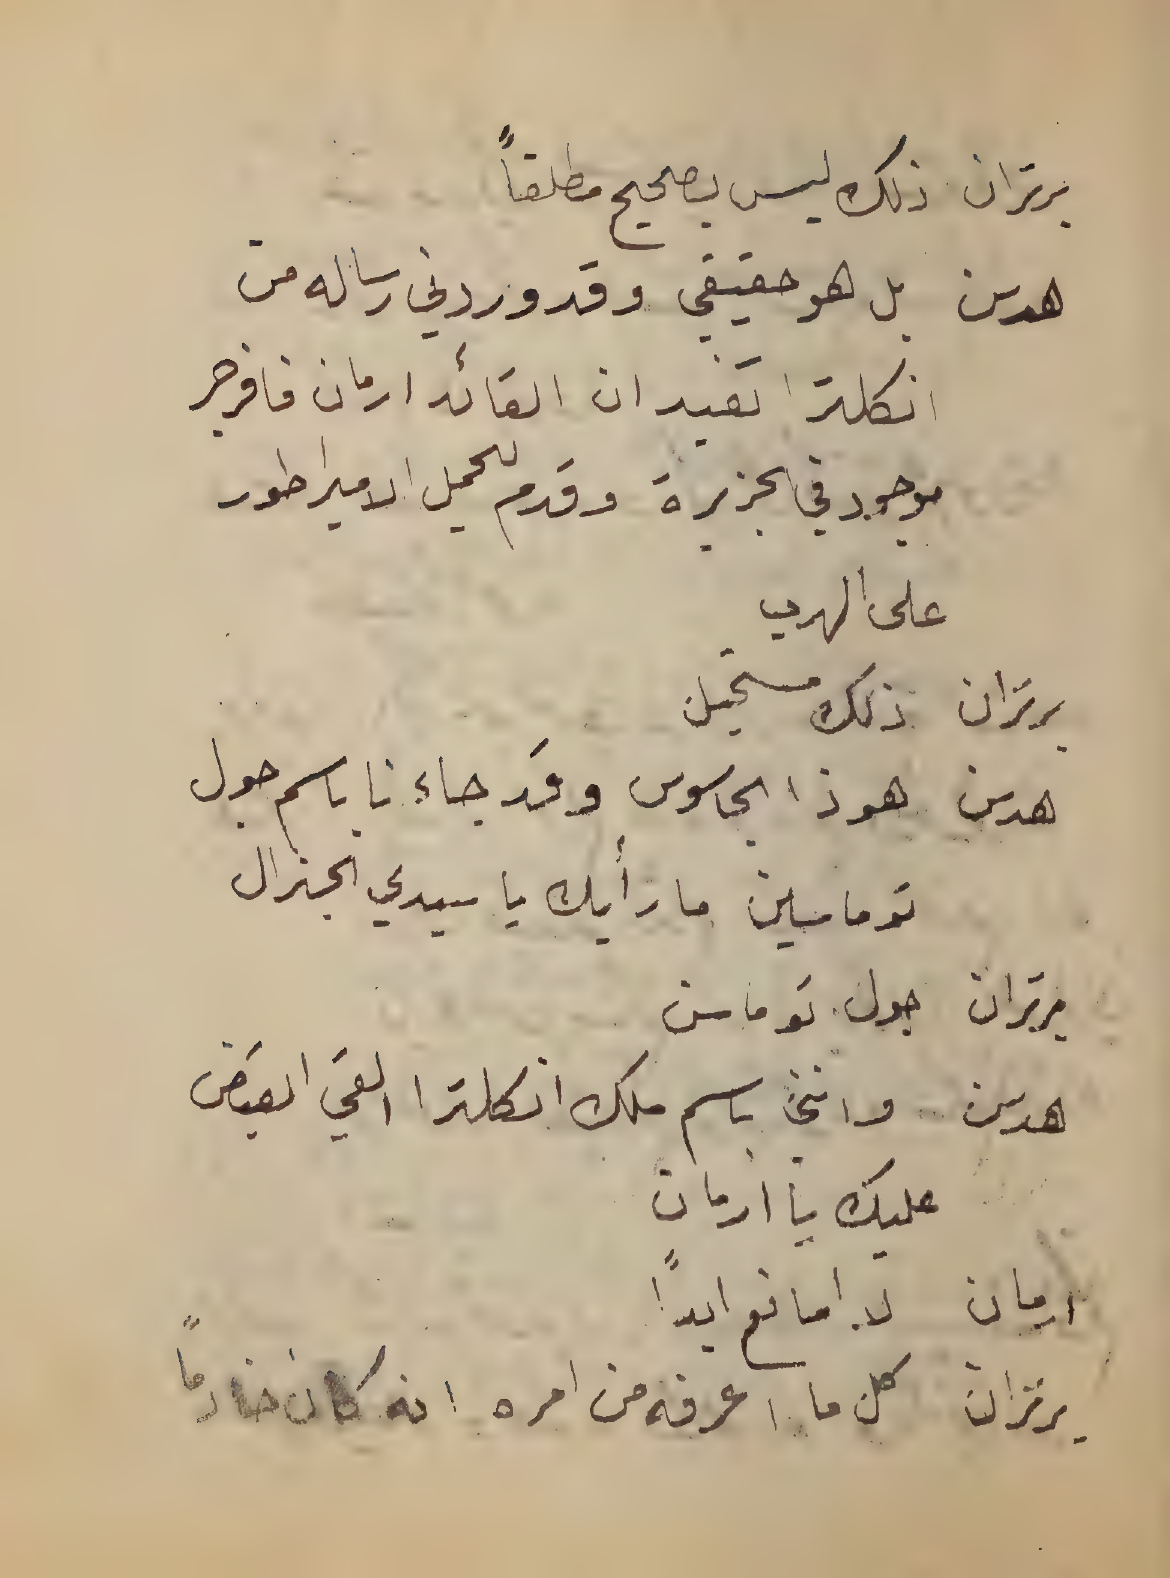 برتران ذلك ليس بصحيح مطلقاً
هدسن بل هو حقيقي وقد وردني رساله من
انكلترا تفيد ان القائد ارمان فافرجر
موجود في الجزيرة وقدم للحميل الامبراطور
على الهرب
برتران ذلك مستحيل
هدسن هوذا الجاسوس وقد جاء نا باسم جول
توماسين ما رأيك يا سيدي الجنرال
برتران جول توماسن
هدسن وانني باسم ملك انكلترا القي القبض
عليك يا ارمان
ارمان لا امانع ابداً
برتران كل ما اعرفه من امره انه كان خادماً